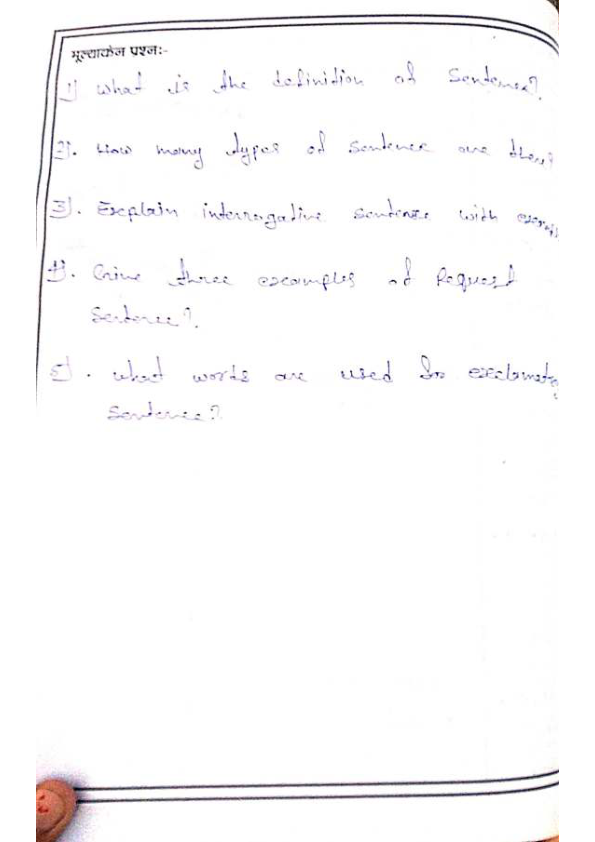 मूल्याकंन प्रश्न:-
1) What is the definition of Sentence?
2). How many types of sentence are there?
3). Explain interrogative sentence with
4). Give three examples of Request
Sentence?.
5). What words are used In
Sentence?